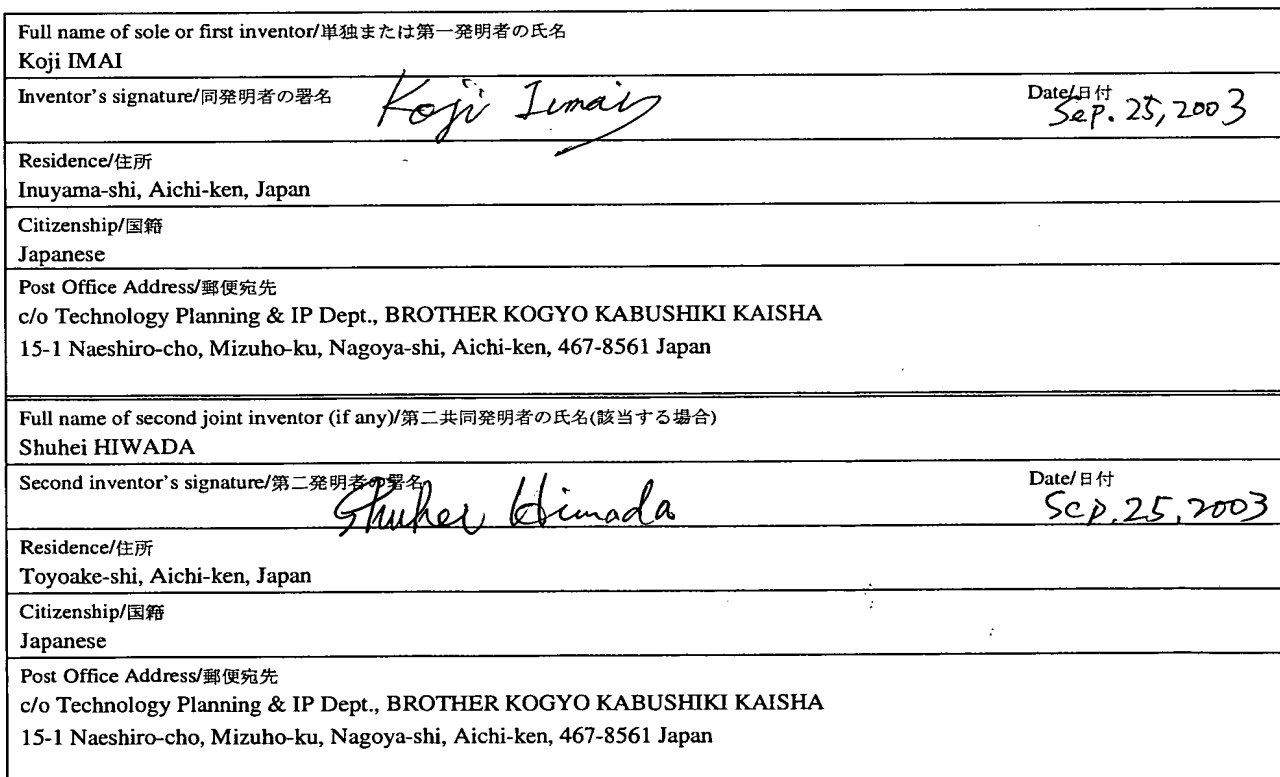 Full name of sole or first inventor/単独または第一発明者の氏名
Koji IMAI
Inventor's signature/同発明者の署名 Koji Imai Date/日付 Sep. 25, 2003
Residence/住所
Inuyama-shi, Aichi-ken, Japan
Citizenship/国籍
Japanese
Post Office Address/郵便宛先
c/o Technology Planning & IP Dept., BROTHER KOGYO KABUSHIKI KAISHA
15-1 Naeshiro-cho, Mizuho-ku, Nagoya-shi, Aichi-ken, 467-8561 Japan
Full name of second joint inventor (if any)/第二共同発明者の氏名(該当する場合)
Shuhei HIWADA
Second inventor's signature/第二発明者の署名 Shuhei Hiwada Date/日付 Sep. 25, 2003
Residence/住所
Toyoake-shi, Aichi-ken, Japan
Citizenship/国籍
Japanese
Post Office Address/郵便宛先
c/o Technology Planning & IP Dept., BROTHER KOGYO KABUSHIKI KAISHA
15-1 Naeshiro-cho, Mizuho-ku, Nagoya-shi, Aichi-ken, 467-8561 Japan